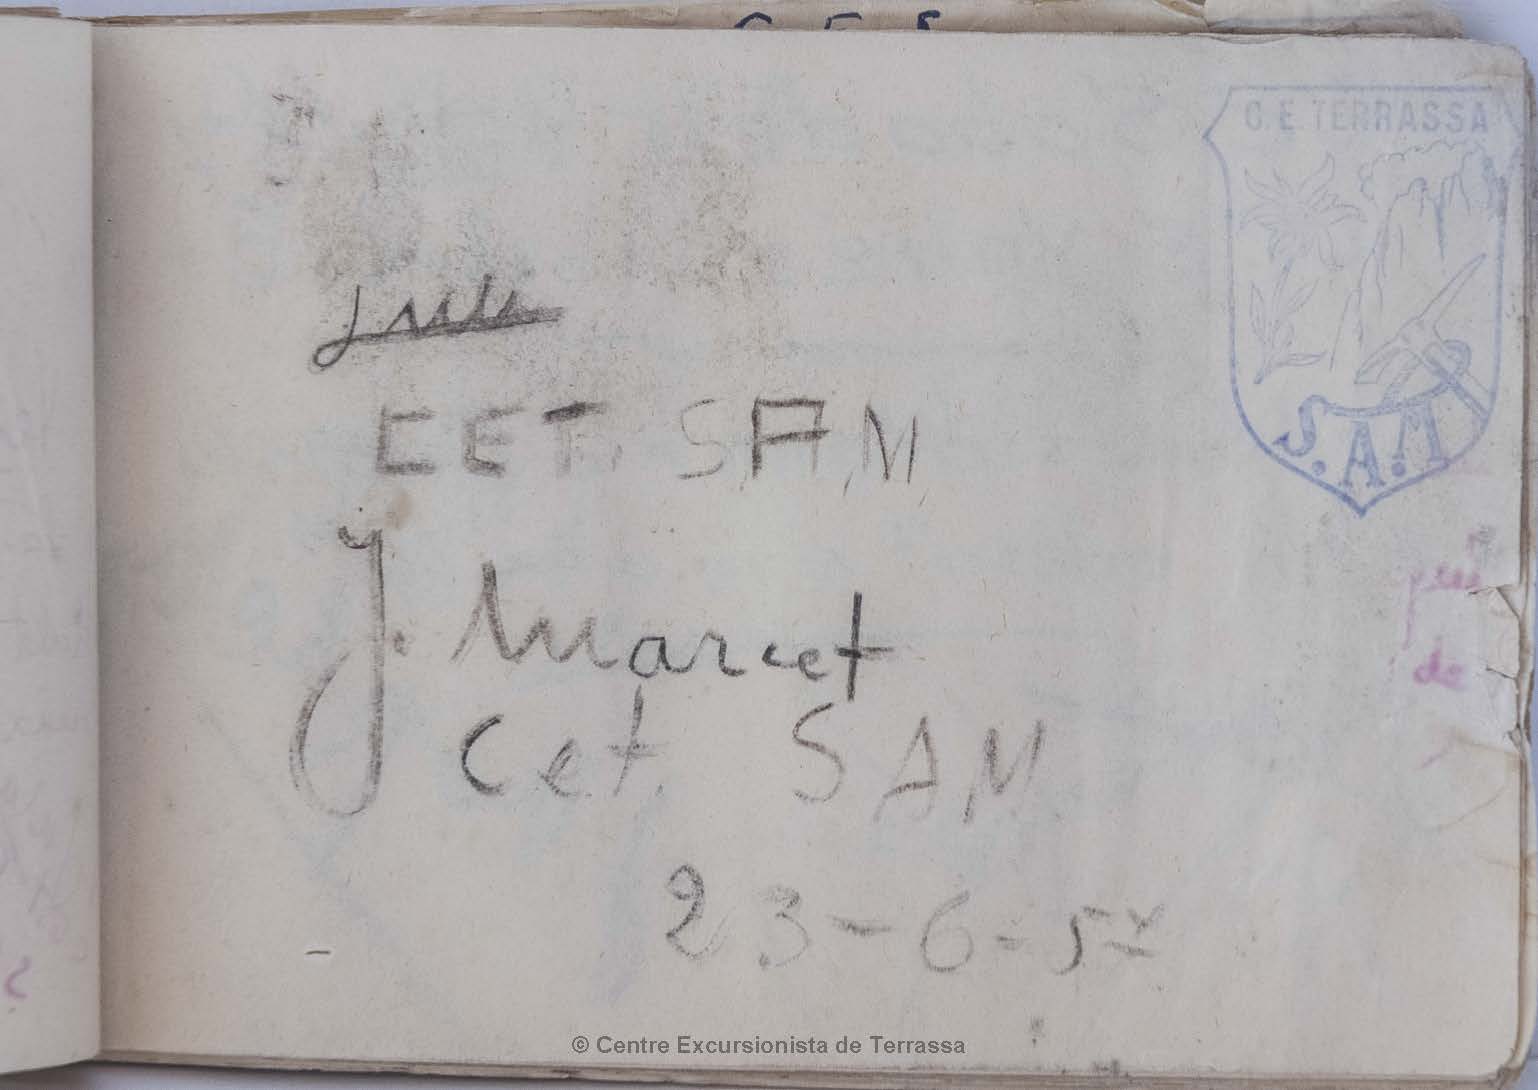 C. E. TERRASSA
S.A.M
CET. S.A.M.
J. Marcet
Cet. SAM
23-6-5
peu
de
© Centre Excursionista de Terrassa